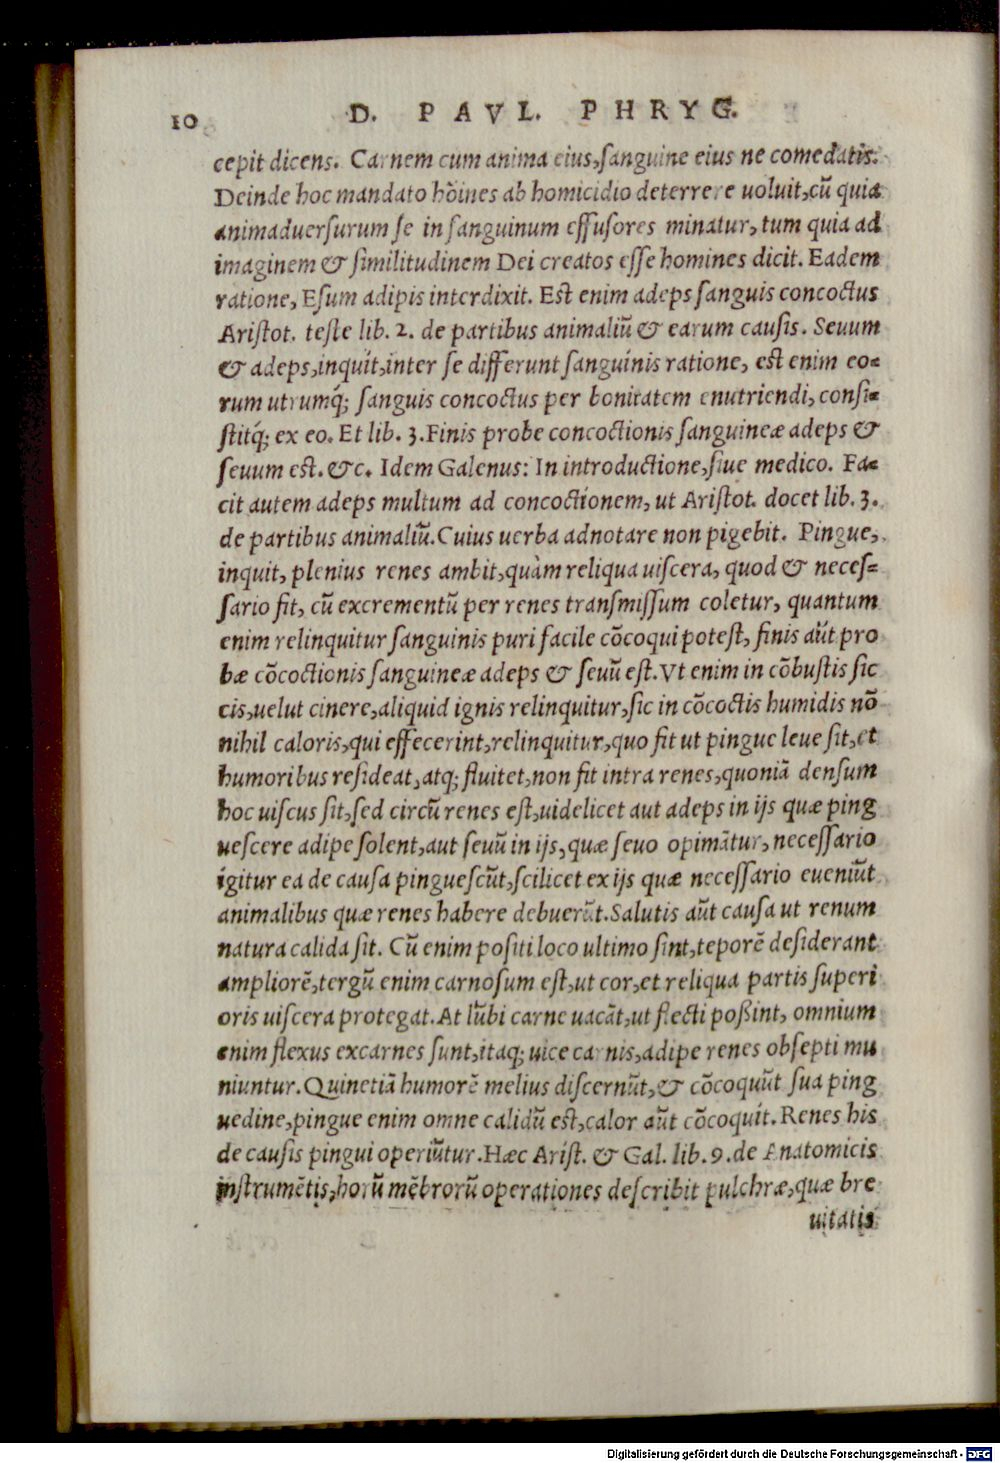 10 D. PAVL. PHRYG.
cepit dicens. Carnem cum anima eius, sanguine eius ne comedatis.
Deinde hoc mandato hõines ab homicidio deterrere uoluit, cũ quia
animaduersurum se in sanguinum effusores minatur, tum quia ad
imaginem & similitudinem Dei creatos esse homines dicit. Eadem
ratione, Esum adipis interdixit. Est enim adeps sanguis concoctus
Aristot. teste lib. 2. de partibus animaliũ & earum causis. Seuum
& adeps, inquit, inter se differunt sanguinis ratione, est enim eo=
rum utrumq; sanguis concoctus per bonitatem enutriendi, consi=
stitq; ex eo. Et lib. 3. Finis probe concoctionis sanguineæ adeps &
seuum est. &c. Idem Galenus: In introductione, siue medico. Fa=
cit autem adeps multum ad concoctionem, ut Aristot. docet lib. 3.
de partibus animaliũ. Cuius uerba adnotare non pigebit. Pingue,
inquit, plenius renes ambit, quàm reliqua uiscera, quod & neces=
sario fit, cũ excrementũ per renes transmissum coletur, quantum
enim relinquitur sanguinis puri facile cõcoqui potest, finis aũt pro
bæ cõcoctionis sanguineæ adeps & seuũ est. Vt enim in cõbustis sic
cis, uelut cinere, aliquid ignis relinquitur, sic in cõcoctis humidis nõ
nihil caloris, qui effecerint, relinquitur, quo fit ut pingue leue sit, et
humoribus resideat, atq; fluitet, non fit intra renes, quoniã densum
hoc uiscus sit, sed circũ renes est, uidelicet aut adeps in ijs quæ ping
uescere adipe solent, aut seuũ in ijs, quæ seuo opimãtur, necessario
igitur ea de causa pinguescũt, scilicet ex ijs quæ necessario eueniũt
animalibus quæ renes habere debuerũt. Salutis aũt causa ut renum
natura calida sit. Cũ enim positi loco ultimo sint, teporẽ desiderant
ampliorẽ, tergũ enim carnosum est, ut cor, et reliqua partis superi
oris uiscera protegat. At lũbi carne uacãt, ut flecti poßint, omnium
enim flexus excarnes sunt, itaq; uice carnis, adipe renes obsepti mu
niuntur. Quinetiã humorẽ melius discernũt, & cõcoquũt sua ping
uedine, pingue enim omne calidũ est, calor aũt cõcoquit. Renes his
de causis pingui operiũtur. Hæc Arist. & Gal. lib. 9. de Anatomicis
instrumẽtis, horũ mẽbrorũ operationes describit pulchræ, quæ bre
uitatis
Digitalisierung gefördert durch die Deutsche Forschungsgemeinschaft - DFG